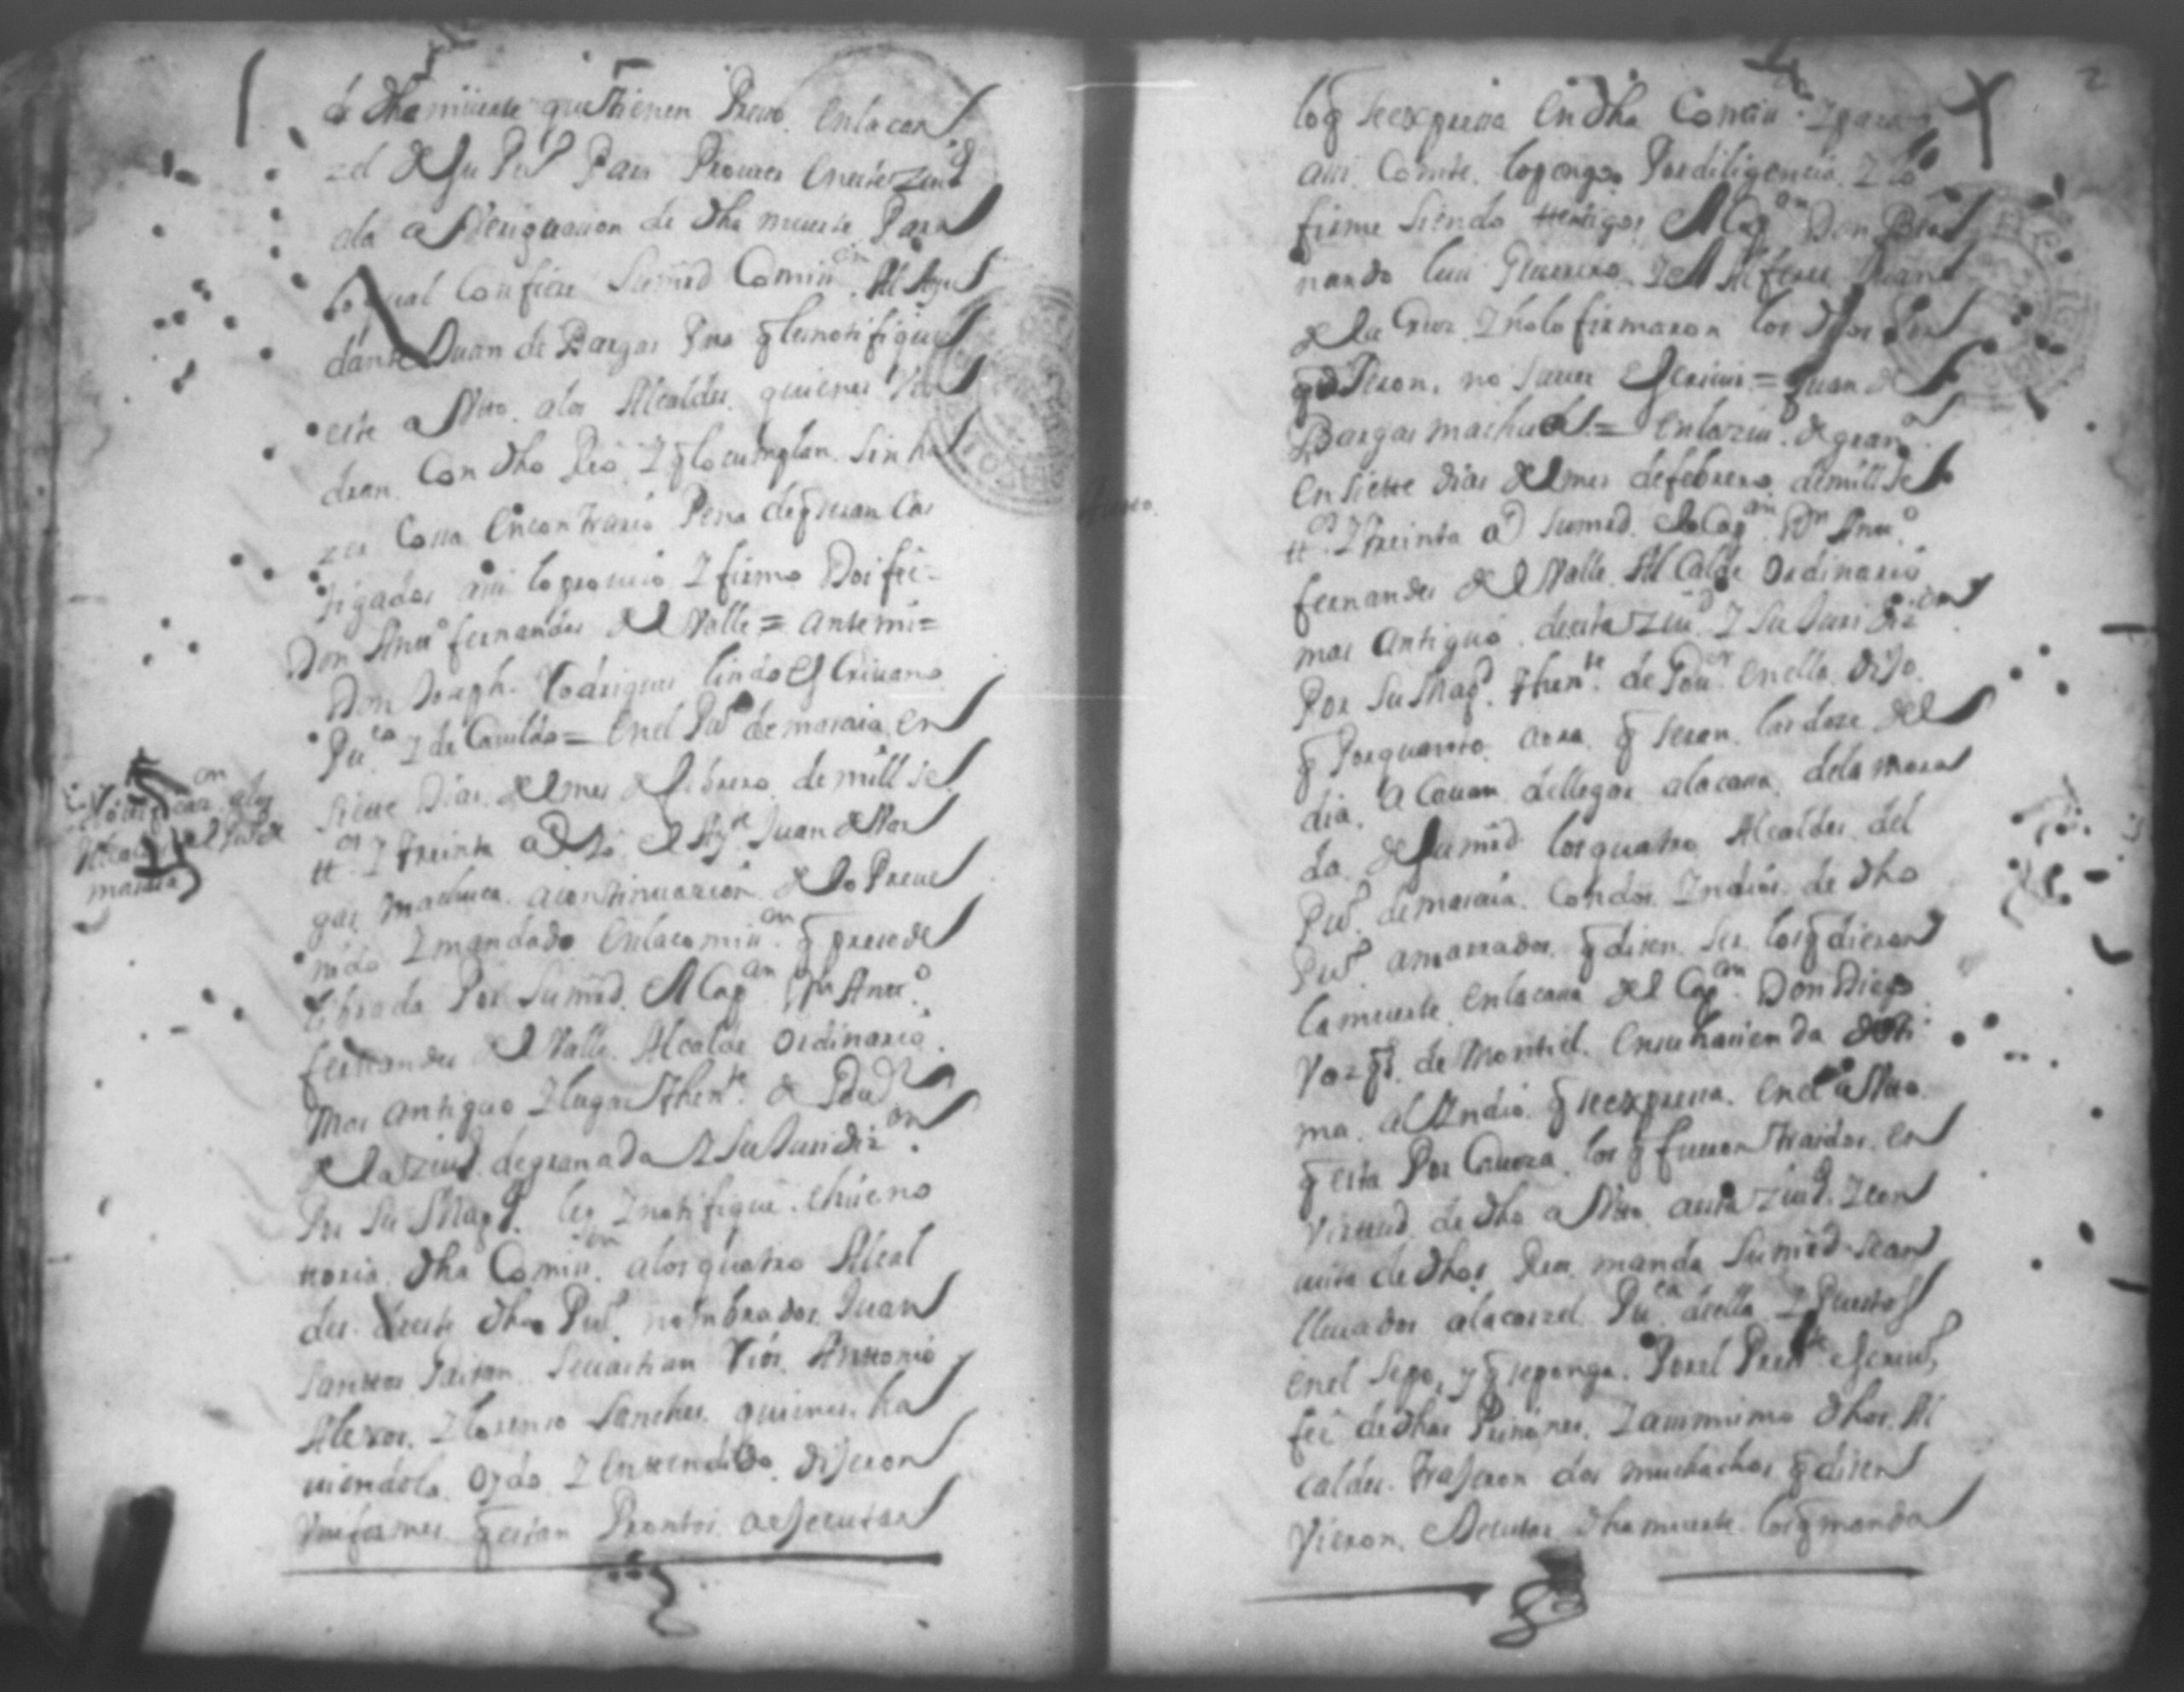 de dha muerte que tienen Preso. enla car
zel de su Puo Para Prover en este Zivd
ala aVeriguacion de dha muerte Para
lo qual Confiere Sumrd Comiss.on Al Ayu
dante Juan de Bargas Para q les notifique
este aVtto. alos Alcaldes. quienes Ven
dran Con dho Reo. I q lo cumplan. Sin ha
zer Cossa en con trario Pena de q seran Cas
tigados assi lo proveio I firmo Doi fee =
Don Anto fernandes del Valle = ante mi =
Don Joseph. Rodrigues lindo esCrivano
Puco I de Cavildo = Enel Puo de masaia, en
Siete Dias. del mes de febrero. de mill sie
ttos I treinta as Io el Ayte Juan de Var
gas machuca. a continuazion de lo Preve
nido I mandado enla comiss.on q precede
librada Por Sumrd. el Capan Dn Anto
fernandes del Valle. Alcalde Ordinario.
Mas antiguo I lugar thente de Govor
de la Ziud. de granada I Su Jurisdizon.
Por Su Magd. lei I notifique.
dha Comisson. alos quatro Alcal
des. deeste dho Puo. nombrados Juan
Santtos Gaitan. Sevastian Rios. Anttonio
I lorenso Sanches. quienes. ha
viendola. Oydo. I entendido. dijeron
Vniformes q estan Promtos a ejecutar
Notificacion alos
Alcaldes del Puo de
masaia
2
lo q se expressa en dha Comiss.on I para q
assi Conste. lo pongo Por diligencia. I lo
firme Siendo testigos el Capan Don Ber
nardo luis Guerrero. I el Alferes Juan
de la Cruz. I no lo firmaron los dhos Por
q dijeron. no Saver escrivir = Juan de
Bargas machuca = enla Ziud. de grana
en Siette dias del mes de febrero. de mill Se
ttos I treinta as Sumrd. el Capan Dn Anto
fernandes del Valle. Al Calde Ordinario
mas antiguo. de esta Ziud I Su Jurisdizion
Por Su Magd. thente de Govor en ella. Dijo.
q Por quanto. aora. q seran. las doze del
dia. a Cavan. dellegar. ala cassa. de la mora
da. de Sumrd. los quatro Alcaldes. del
Puo. de masaia. Con dos. Indios. de dho
Puo amarrados. q disen. Ser. los q dieron
la muerte enla cassa del Capan Don Diego
Vasqs. de Montiel. en su hacienda
ma. al Indio. q se expressa. en el aVtto.
q esta Por Caveza. los q fueron traidos. en
Virtud. de dho aVtto. a esta Ziud. I con
vista de dhos Reos manda Sumrd. Sean
llevados ala carzel Puca de ella. I Puestos
en el Sepo, y q se ponga. Por el Presste escrivo,
fee de dhas Prisiones. I assimismo dhos. Al
caldes. trajeron dos muchachos q disen
Vieron. ejecutar dha muerte. los q manda